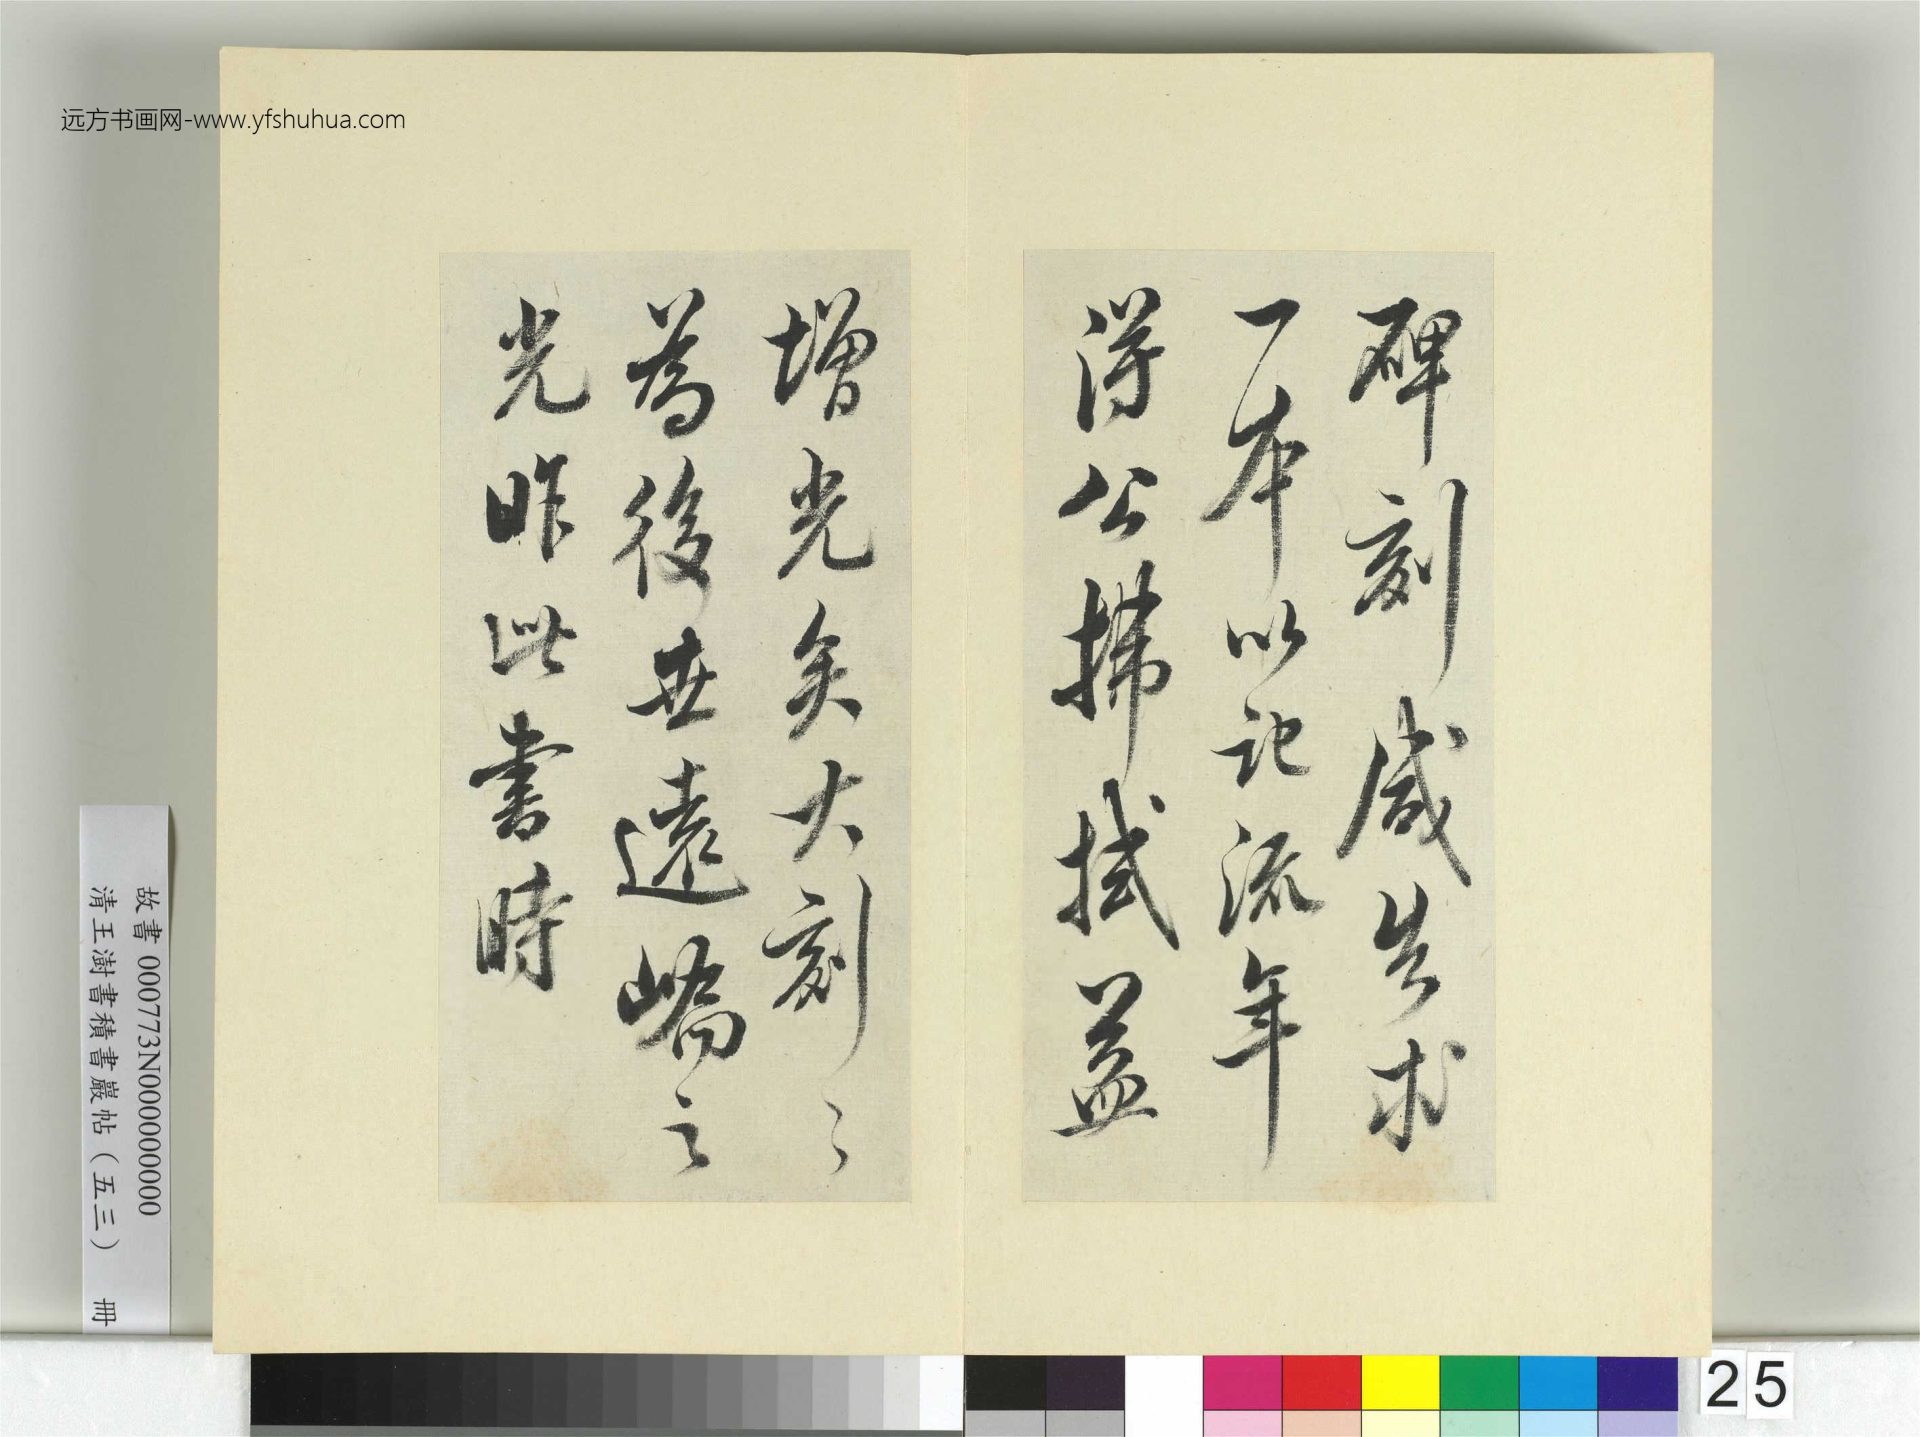 远方书画网-www.yfshuhua.com
碑刻咸告求
一本以记流年
得公拂拭益
增光矣大刻之
為後世遠嶠之
光昨此書時
故書000773N000000000
清王澍書積書巖帖（五三）　冊
25